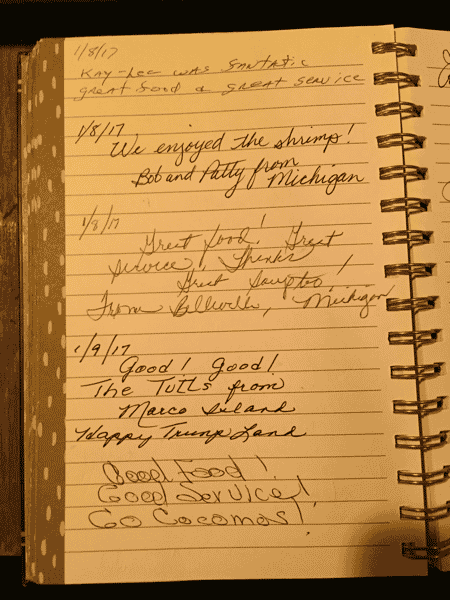 1/8/17
KAY-LEE WAS FANTASTIC
great food & GREAT SERVICE
1/8/17
We enjoyed the shrimp!
Bob and Patty from
Michigan
1/8/17
Great food! Great
Service, Thanks
Great Soup too!
From Belleville, Michigan
1/9/17
Good! Good!
The Tutls from
Marco Island
Happy Trump Land
Good Food!
Good Service!
Go Cocomos!